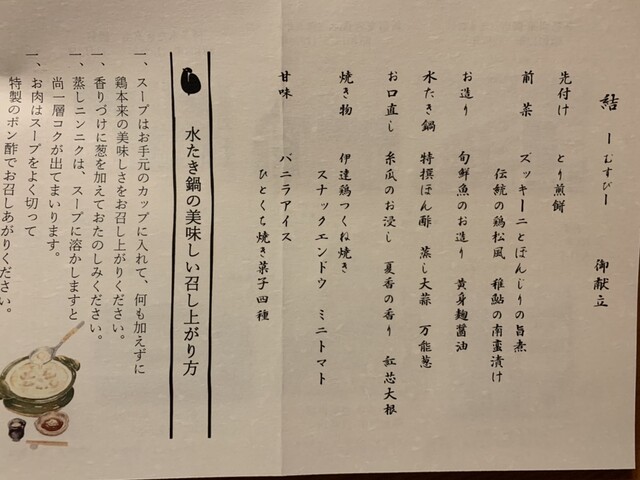 結 ーむすびー 御献立
先付け とり煎餅
前菜 ズッキーニとぼんじりの旨煮
伝統の鶏松風 稚鮎の南蛮漬け
お造り 旬鮮魚のお造り 黄身麹醤油
水たき鍋 特撰ぽん酢 蒸し大蒜 万能葱
お口直し 糸瓜のお浸し 夏香の香り 紅芯大根
焼き物 伊達鶏つくね焼き
スナックエンドウ ミニトマト
甘味 バニラアイス
ひとくち焼き菓子四種
水たき鍋の美味しい召し上がり方
一、スープはお手元のカップに入れて、何も加えずに
鶏本来の美味しさをお召し上がりください。
一、香りづけに葱を加えておたのしみください。
一、蒸しニンニクは、スープに溶かしますと
尚一層コクが出てまいります。
一、お肉はスープをよく切って
特製のポン酢でお召しあがりください。